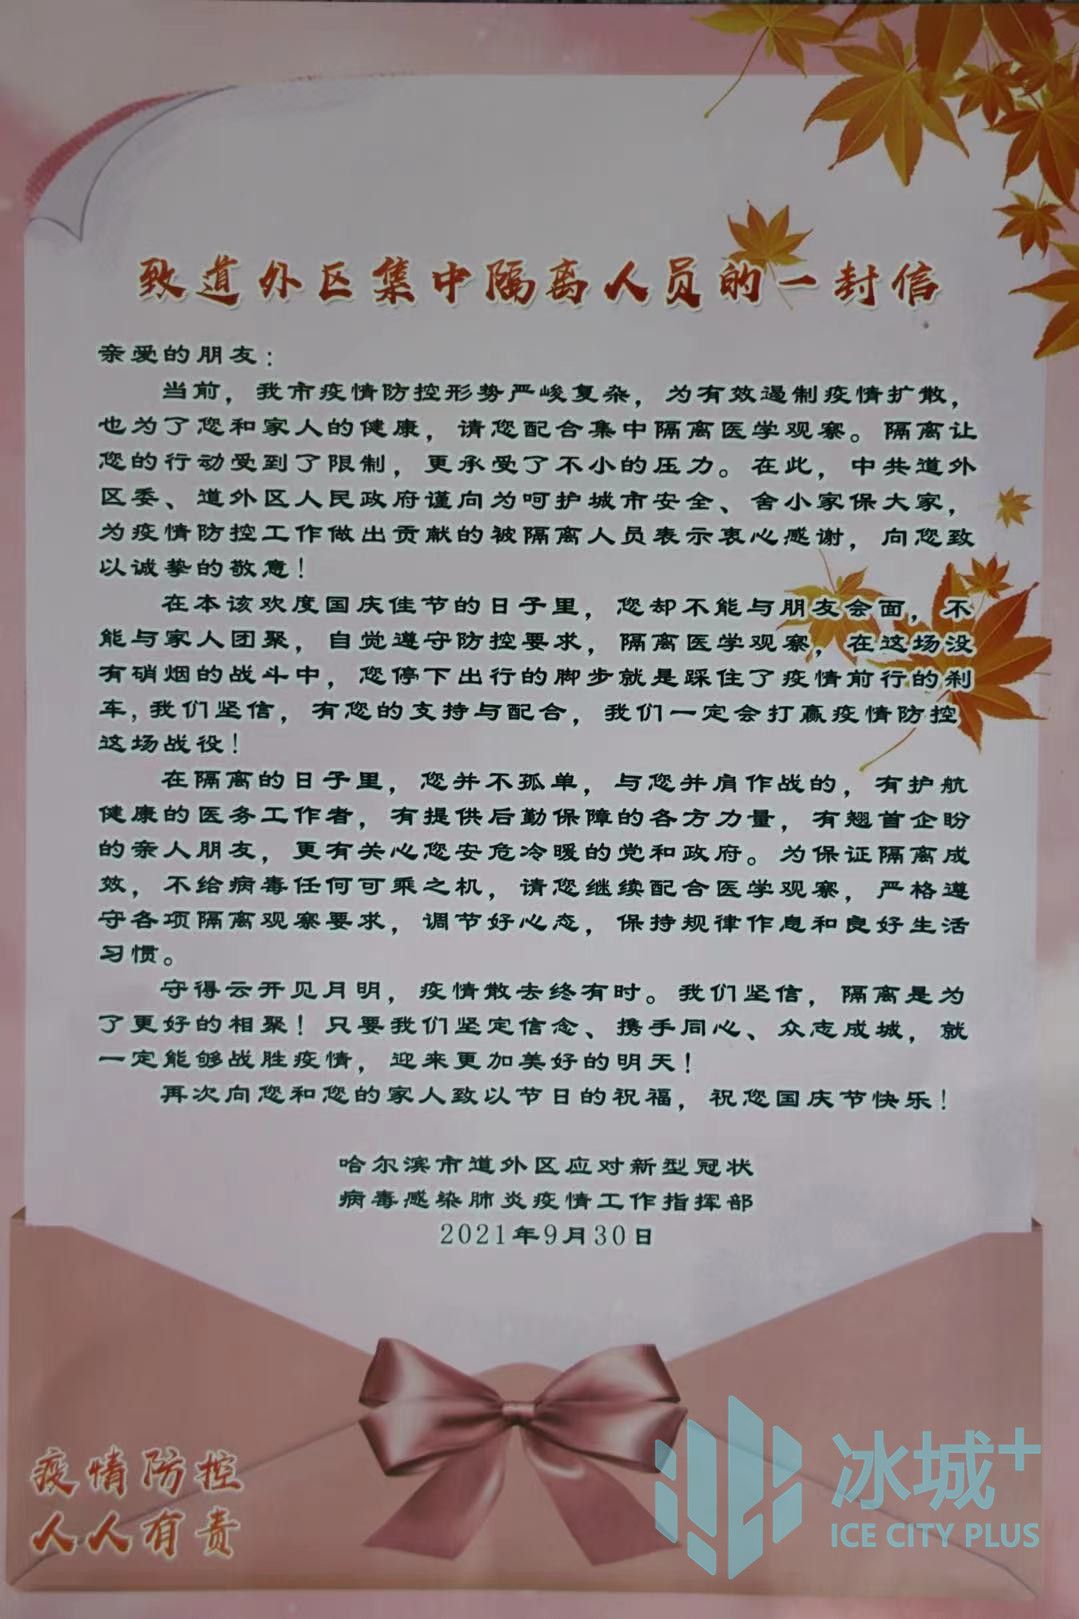 致道外区集中隔离人员的一封信
亲爱的朋友：
当前，我市疫情防控形势严峻复杂，为有效遏制疫情扩散，
也为了您和家人的健康，请您配合集中隔离医学观察。隔离让
您的行动受到了限制，更承受了不小的压力。在此，中共道外
区委、道外区人民政府谨向为呵护城市安全、舍小家保大家，
为疫情防控工作做出贡献的被隔离人员表示衷心感谢，向您致
以诚挚的敬意！
在本该欢度国庆佳节的日子里，您却不能与朋友会面，不
能与家人团聚，自觉遵守防控要求，隔离医学观察，在这场没
有硝烟的战斗中，您停下出行的脚步就是踩住了疫情前行的刹
车，我们坚信，有您的支持与配合，我们一定会打赢疫情防控
这场战役！
在隔离的日子里，您并不孤单，与您并肩作战的，有护航
健康的医务工作者，有提供后勤保障的各方力量，有翘首企盼
的亲人朋友，更有关心您安危冷暖的党和政府。为保证隔离成
效，不给病毒任何可乘之机，请您继续配合医学观察，严格遵
守各项隔离观察要求，调节好心态，保持规律作息和良好生活
习惯。
守得云开见月明，疫情散去终有时。我们坚信，隔离是为
了更好的相聚！只要我们坚定信念、携手同心、众志成城，就
一定能够战胜疫情，迎来更加美好的明天！
再次向您和您的家人致以节日的祝福，祝您国庆节快乐！
哈尔滨市道外区应对新型冠状
病毒感染肺炎疫情工作指挥部
2021年9月30日
疫情防控
人人有责
冰城+
ICE CITY PLUS